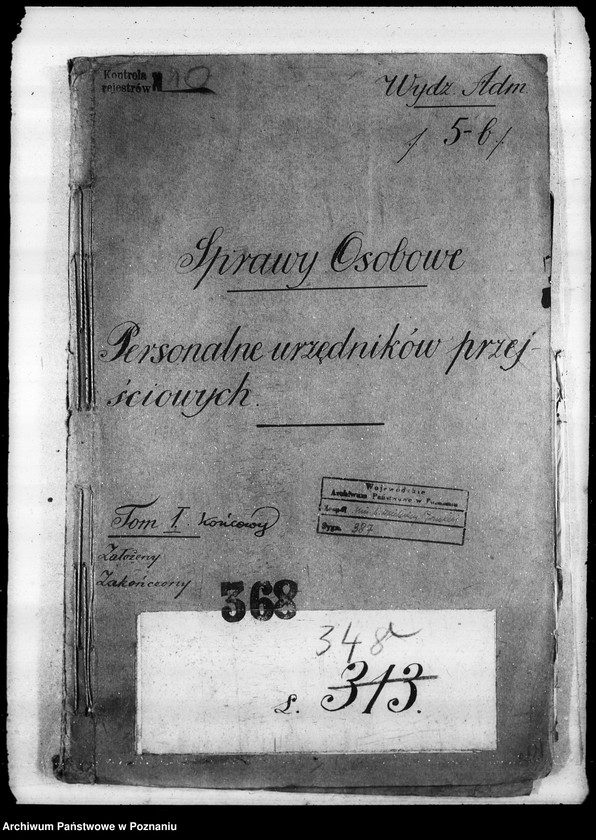 Kontrola
rejestrów 10
Wydz. Adm
/. 5-6 /.
Sprawy Osobowe
Personalne urzędników przej-
ściowych.
Tom I końcowy
Założony
Zakończony
Wojewódzkie
Archiwum Państwowe w Poznaniu
Zespół
Sygn. 387
368
348
L. 313.
Archiwum Państwowe w Poznaniu